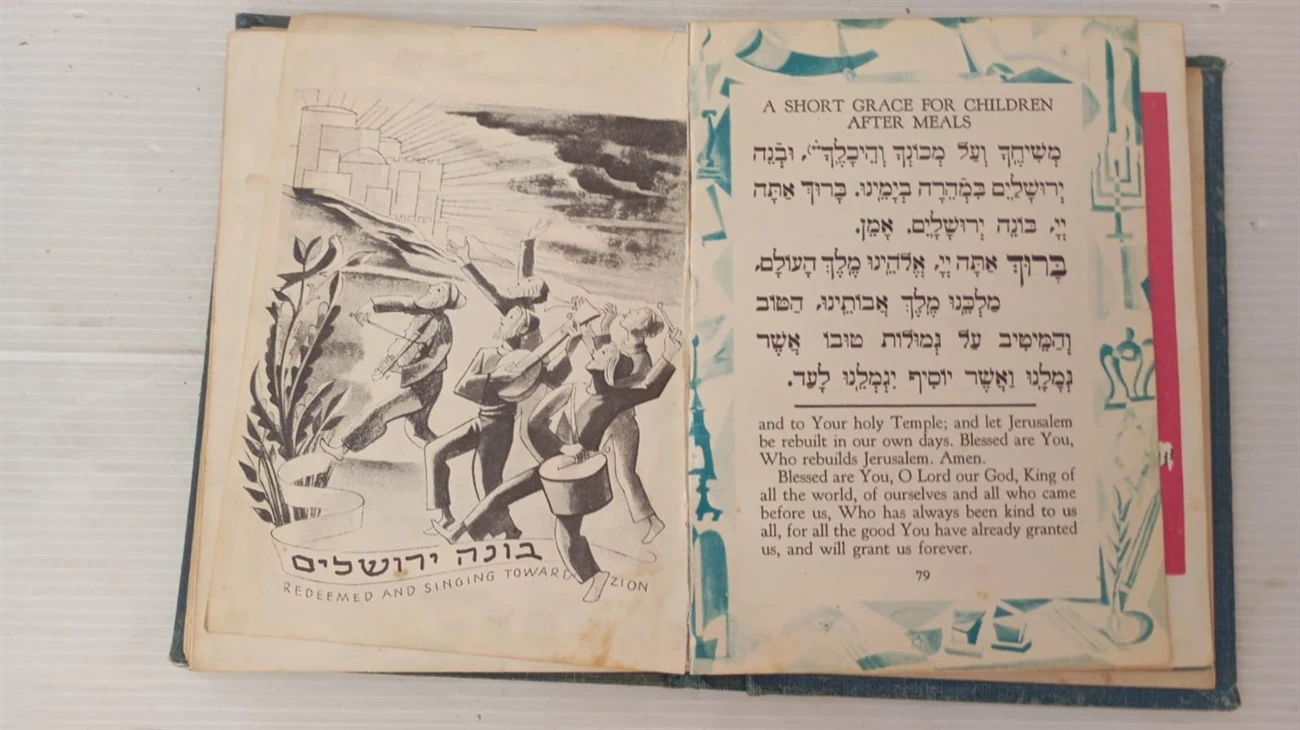 בונה ירושלים
REDEEMED AND SINGING TOWARD ZION
A SHORT GRACE FOR CHILDREN
AFTER MEALS
מְשִׁיחֶךָ וְעַל מְכוֹנְךָ וְהֵיכָלֶךָ, וּבְנֵה
יְרוּשָׁלַיִם בִּמְהֵרָה בְיָמֵינוּ. בָּרוּךְ אַתָּה
יְיָ, בּוֹנֵה יְרוּשָׁלָיִם. אָמֵן.
בָּרוּךְ אַתָּה יְיָ, אֱלֹהֵינוּ מֶלֶךְ הָעוֹלָם,
מַלְכֵּנוּ מֶלֶךְ אֲבוֹתֵינוּ, הַטּוֹב
וְהַמֵּיטִיב עַל גְּמוּלוֹת טוּבוֹ אֲשֶׁר
גְּמָלָנוּ וַאֲשֶׁר יוֹסִיף יִגְמְלֵנוּ לָעַד.
and to Your holy Temple; and let Jerusalem
be rebuilt in our own days. Blessed are You,
Who rebuilds Jerusalem. Amen.
Blessed are You, O Lord our God, King of
all the world, of ourselves and all who came
before us, Who has always been kind to us
all, for all the good You have already granted
us, and will grant us forever.
79